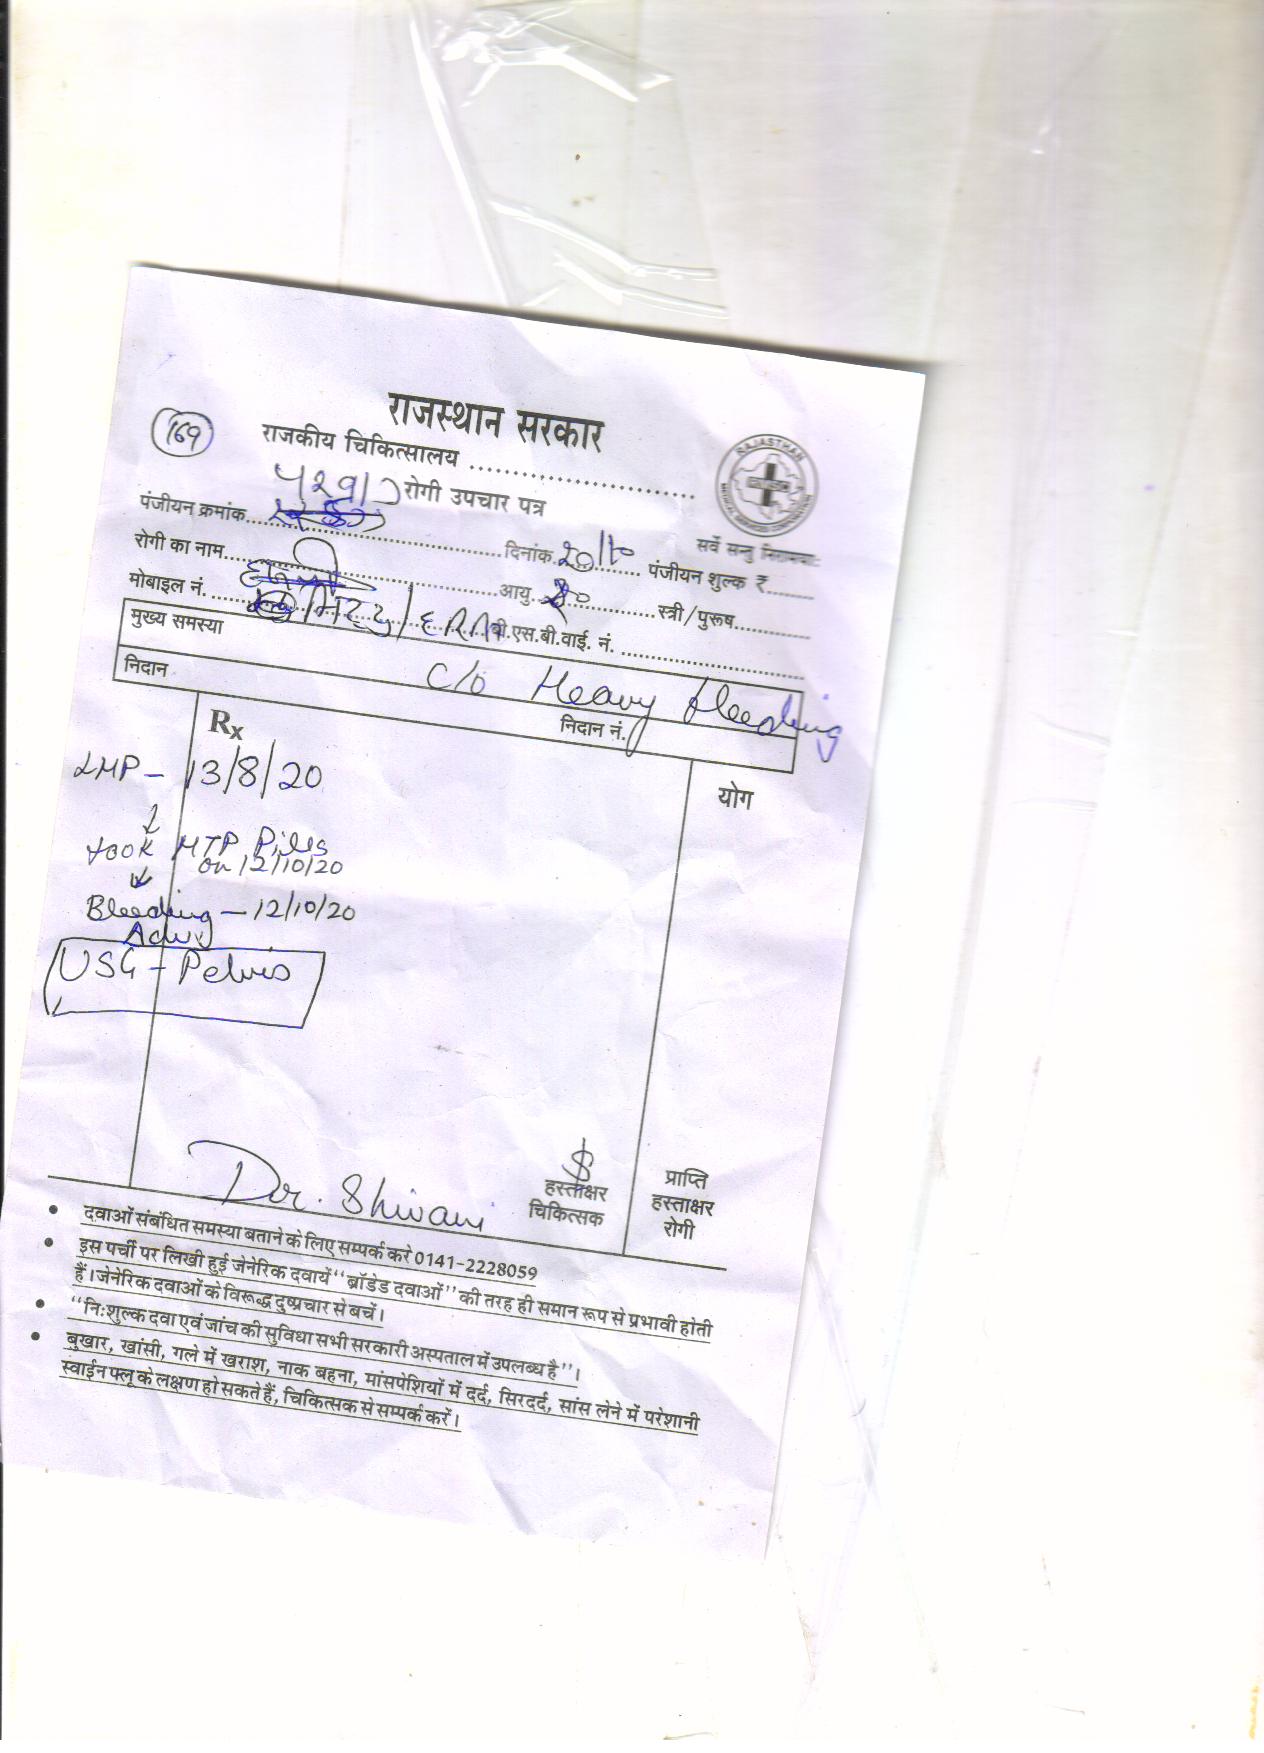 राजस्थान सरकार
169
राजकीय चिकित्सालय
RAJASTHAN
MEDICAL SERVICES CORPORATION
रोगी उपचार पत्र
सर्वे सन्तु निरामयाः
पंजीयन क्रमांक
दिनांक 20/10 पंजीयन शुल्क ₹
रोगी का नाम
आयु स्त्री/पुरूष
मोबाइल नं. बी.एस.बी.वाई. नं.
मुख्य समस्या
C/o Heavy Bleeding
निदान निदान नं.
Rx
योग
LMP - 13/8/20
took MTP Pills
on 12/10/20
Bleeding - 12/10/20
Adv
USG - Pelvis
Dr. Shivani
हस्ताक्षर
चिकित्सक
प्राप्ति
हस्ताक्षर
रोगी
• दवाओं संबंधित समस्या बताने के लिए सम्पर्क करे 0141-2228059
• इस पर्ची पर लिखी हुई जेनेरिक दवायें "ब्रॉडेड दवाओं" की तरह ही समान रूप से प्रभावी होती
हैं। जेनेरिक दवाओं के विरूद्ध दुष्प्रचार से बचें।
• "निःशुल्क दवा एवं जांच की सुविधा सभी सरकारी अस्पताल में उपलब्ध है"।
• बुखार, खांसी, गले में खराश, नाक बहना, मांसपेशियों में दर्द, सिरदर्द, सांस लेने में परेशानी
स्वाईन फ्लू के लक्षण हो सकते हैं, चिकित्सक से सम्पर्क करें।